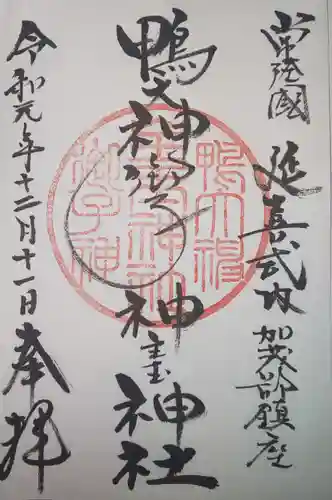 常陸國
延喜式内
加茂部鎮座
鴨大神御子神主玉神社
令和元年十二月十一日
奉拝